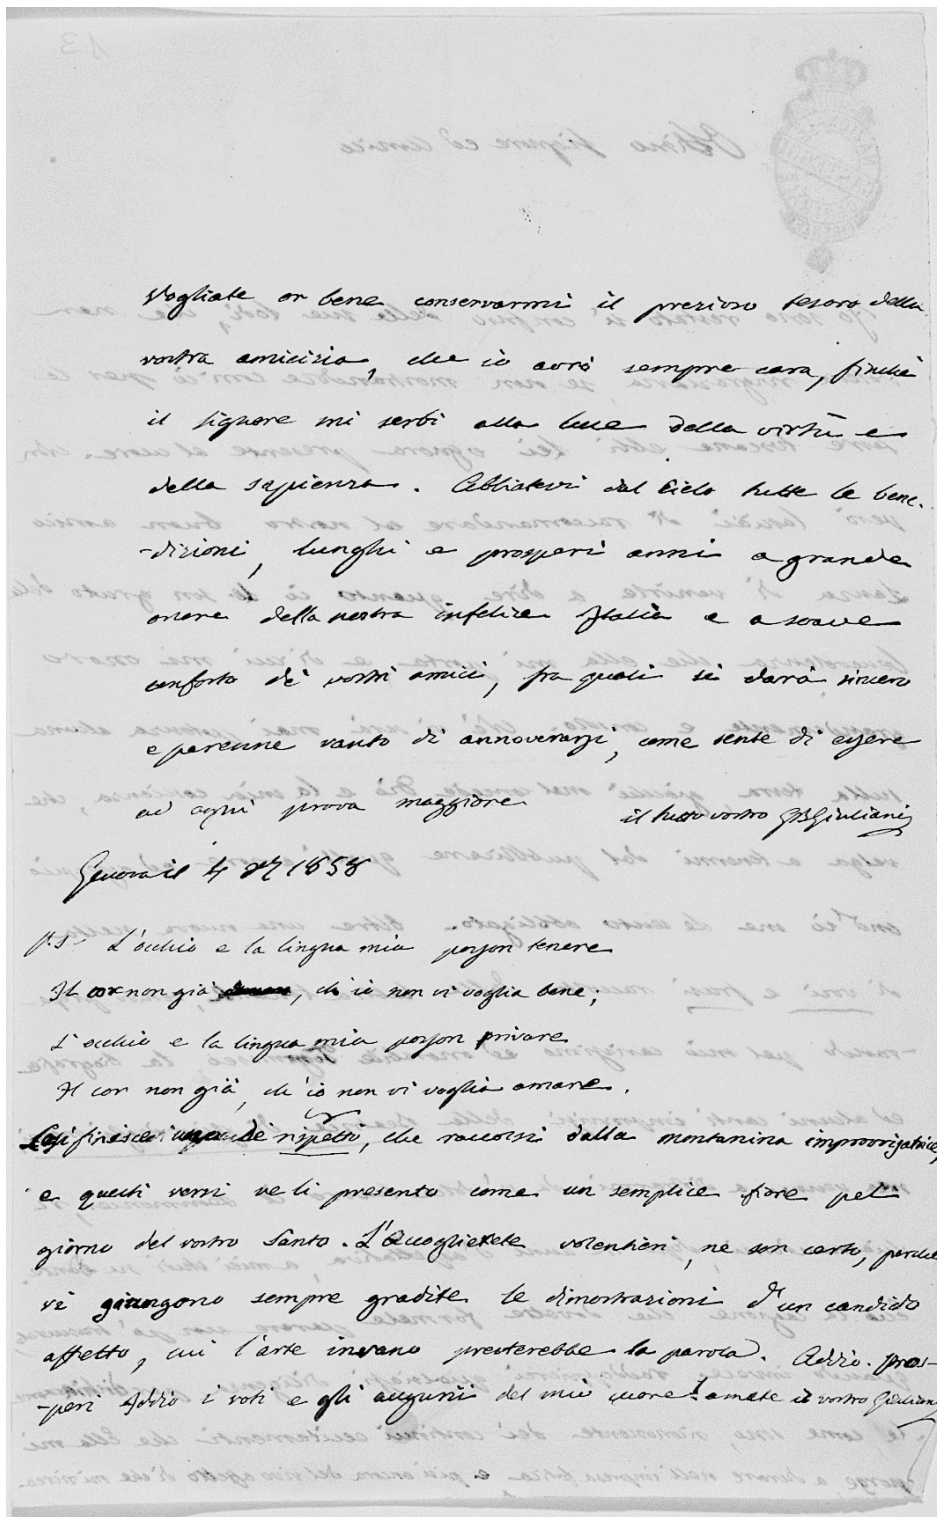 Vogliate or bene conservarmi il prezioso tesoro della
vostra amicizia, che io avrò sempre cara, finché
il Signore mi serbi alla luce della virtù e
della sapienza. Abbiatevi dal Cielo tutte le bene-
-dizioni, lunghi e prosperi anni a grande
onore della nostra infelice Italia e a soave
conforto de' vostri amici, fra quali si darà sincero
e perenne vanto di annoverarsi, come sente di essere
ad ogni prova maggiore
il tutto vostro GBGiuliani
Genova il 4 1858
P.S. L'occhio e la lingua mia posson tenere
Il cor non già, ch'io non vi voglia bene;
L'occhio e la lingua mia posson privare
Il cor non già, ch'io non vi voglia amare.
Così finisce uno de' rispetti, che raccolsi dalla montanina improvvisatrice,
e questi versi ve li presento come un semplice fiore pel
giorno del vostro Santo. L'accoglierete volentieri, ne son certo, perché
vi giungono sempre gradite le dimostrazioni d'un candido
affetto, cui l'arte invano presterebbe la parola. Addio. pros-
-peri Iddio i voti e gli augurii del mio cuore! amate il vostro Giuliani